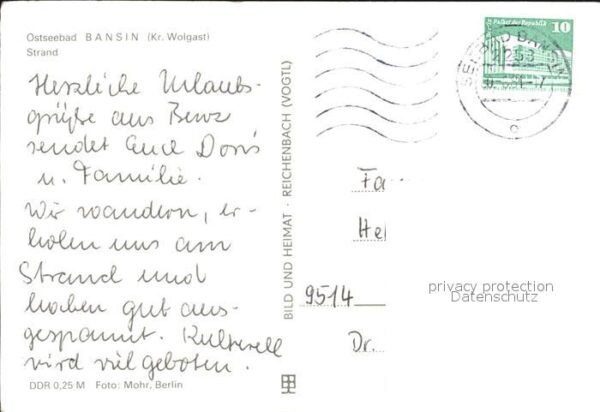 Ostseebad BANSIN (Kr. Wolgast)
Strand
Herzliche Urlaubs-
grüße aus Benz
sendet Euch Doris
u. Familie.
Wir wandern, er-
holen uns am
Strand und
haben gut aus-
gespannt. Kulturell
wird viel geboten.
DDR 0,25 M Foto: Mohr, Berlin
BILD UND HEIMAT · REICHENBACH (VOGTL)
Palast der Republik 10
SEEBAD BANSIN
2253
Fa
He
9514
Dr.
privacy protection
Datenschutz